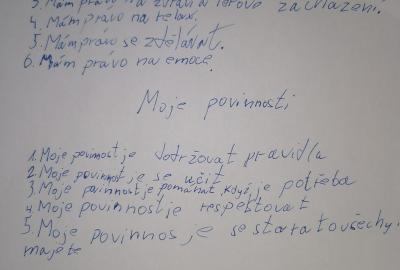 3. Mám právo na zdraví a férové zacházení.
4. Mám právo na relax.
5. Mám právo se vzdělávat.
6. Mám právo na emoce.
Moje povinnosti
1. Moje povinnost je dodržovat pravidla
2. Moje povinnost je se učit
3. Moje povinnost je pomáhat, když je potřeba
4. Moje povinnost je respektovat
5. Moje povinnos je se starat o všechy.
majete